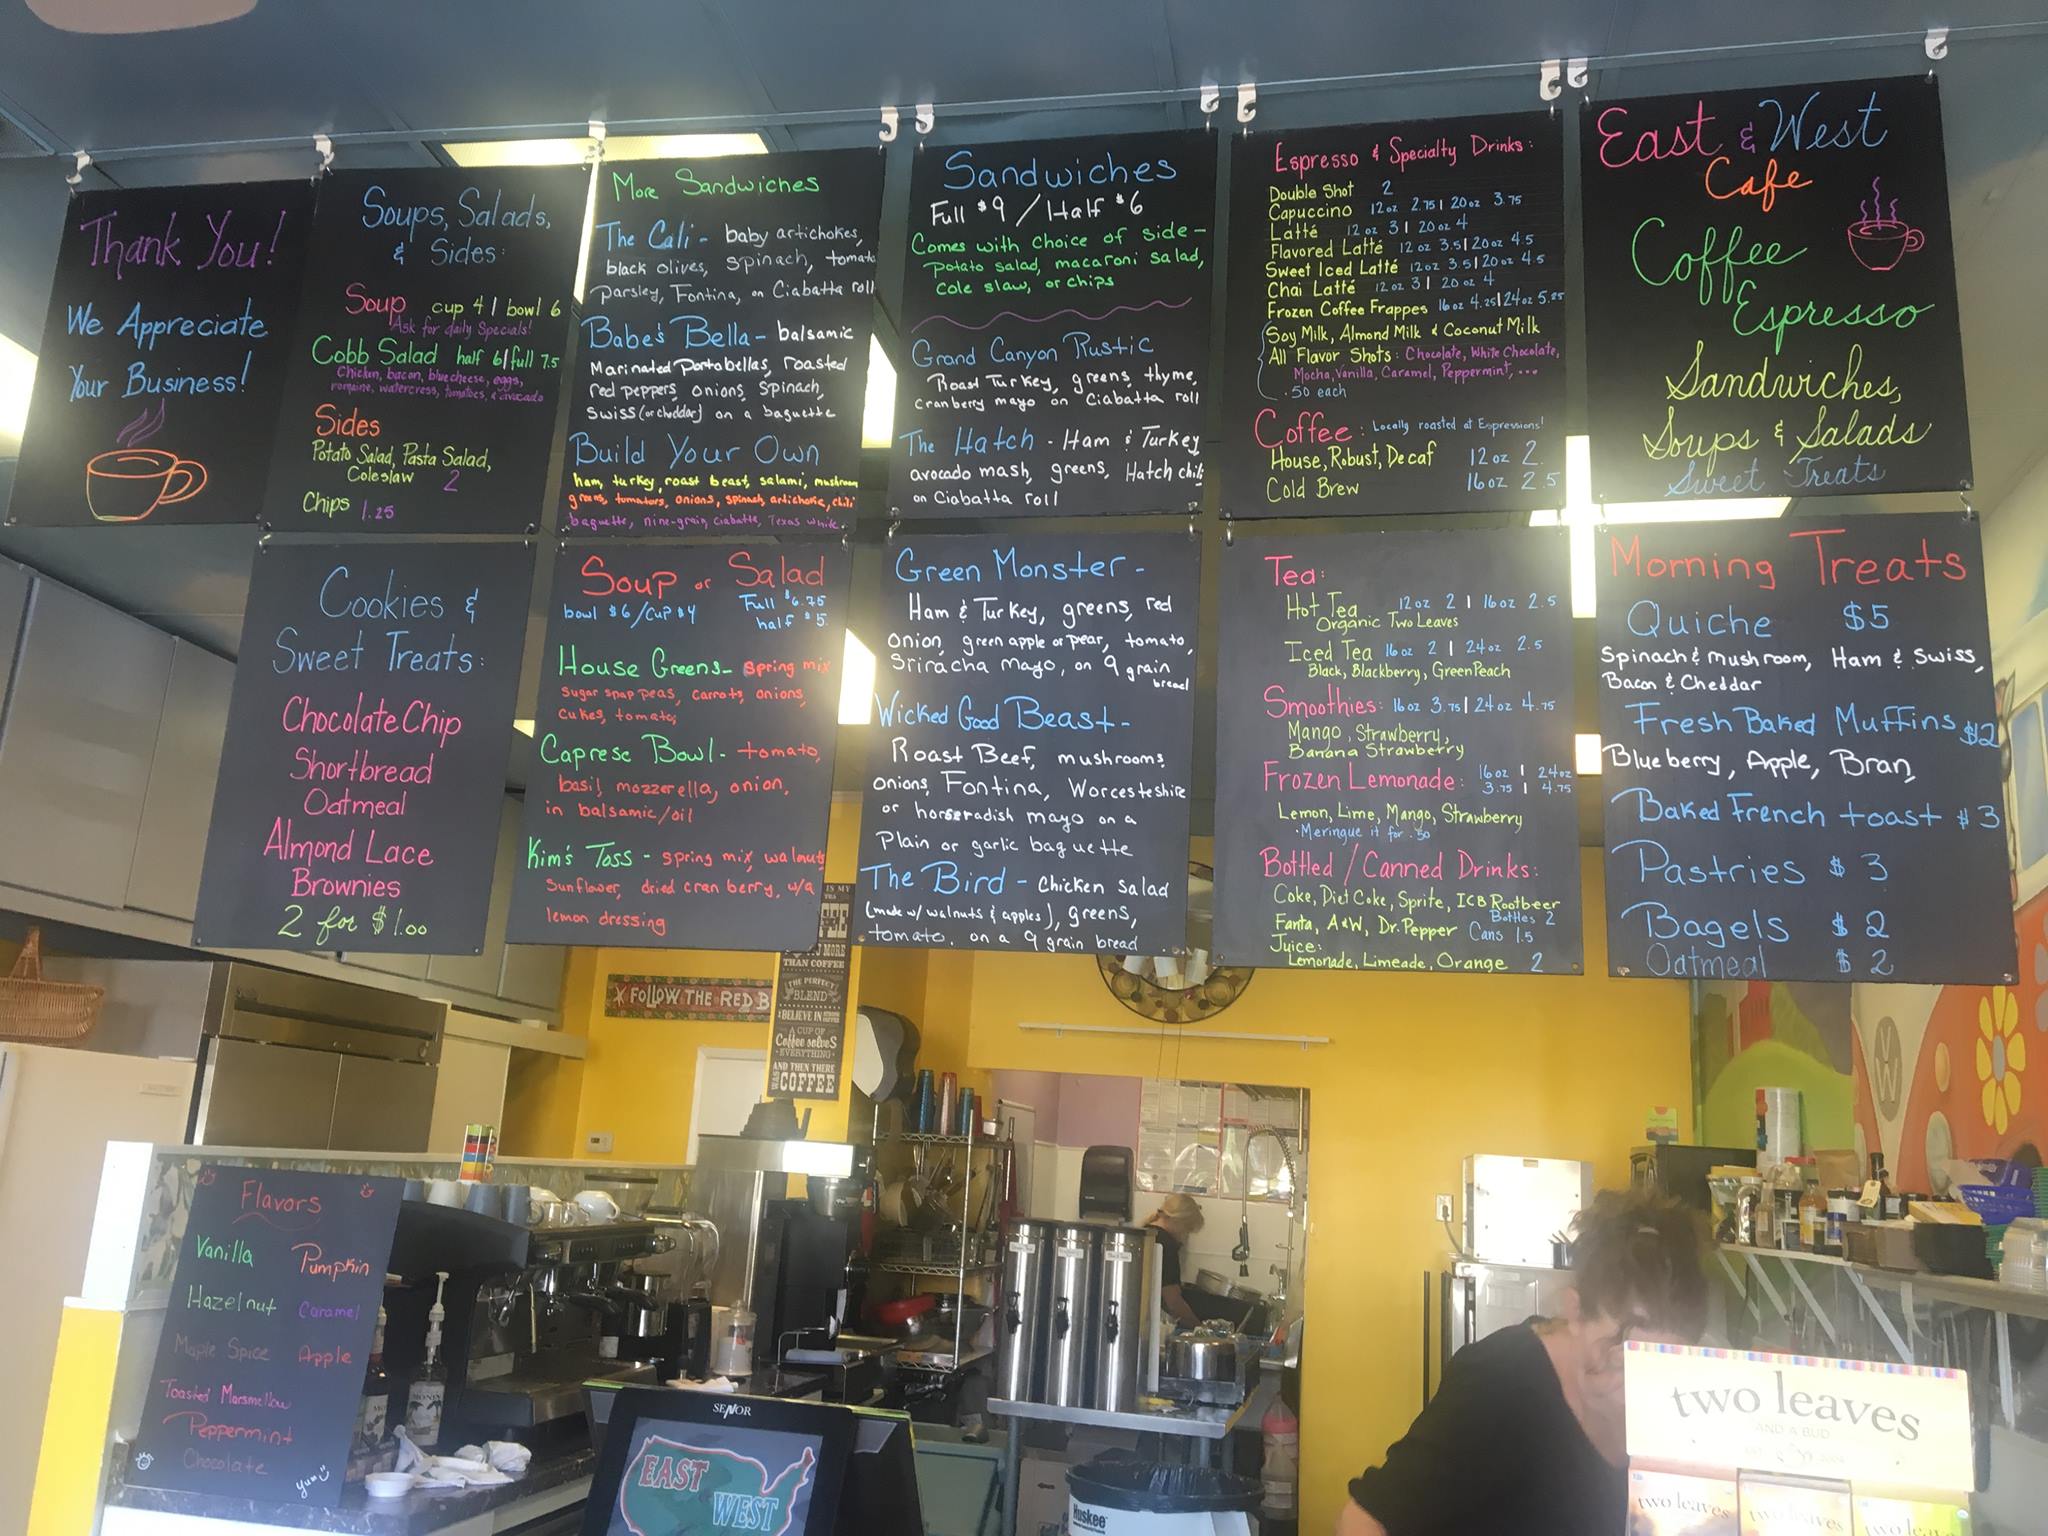 Thank You!
We Appreciate
Your Business!
Soups, Salads,
& Sides:
Soup cup 4 | bowl 6
Ask for daily Specials!
Cobb Salad half 6 | full 7.5
Chicken, bacon, blue cheese, eggs,
romaine, watercress, tomatoes, & avocado
Sides
Potato Salad, Pasta Salad,
Coleslaw 2
Chips 1.25
More Sandwiches
The Cali - baby artichokes,
black olives, spinach, tomato
parsley, Fontina, on Ciabatta roll
Babe's Bella - balsamic
Marinated Portobellas, roasted
red peppers, onions, spinach,
Swiss (or cheddar) on a baguette
Build Your Own
ham, turkey, roast beast, salami, mushroom
greens, tomators, onions, spinach, artichoke, chili
baguette, nine-grain, ciabatta, Texas white
Sandwiches
Full $9 / Half $6
Comes with choice of side -
potato salad, macaroni salad,
cole slaw, or chips
Grand Canyon Rustic
Roast Turkey, greens, thyme,
cranberry mayo on Ciabatta roll
The Hatch - Ham & Turkey,
avocado mash, greens, Hatch chili
on Ciabatta roll
Espresso & Specialty Drinks:
Double Shot 2
Capuccino 12oz 2.75 | 20oz 3.75
Latté 12oz 3 | 20oz 4
Flavored Latté 12oz 3.5 | 20oz 4.5
Sweet Iced Latté 12oz 3.5 | 20oz 4.5
Chai Latté 12oz 3 | 20oz 4
Frozen Coffee Frappes 16oz 4.25 | 24oz 5.25
Soy Milk, Almond Milk & Coconut Milk
All Flavor Shots: Chocolate, White Chocolate,
Mocha, Vanilla, Caramel, Peppermint, ...
.50 each
Coffee: Locally roasted at Espressions!
House, Robust, Decaf 12oz 2.
Cold Brew 16oz 2.5
East & West
Cafe
Coffee
Espresso
Sandwiches,
Soups & Salads
Sweet Treats
Cookies &
Sweet Treats:
Chocolate Chip
Shortbread
Oatmeal
Almond Lace
Brownies
2 for $1.00
Soup or Salad
bowl $6 / cup $4 Full $6.75
half $5.
House Greens - spring mix
sugar snap peas, carrots, onions,
cukes, tomato,
Caprese Bowl - tomato,
basil, mozzerella, onion,
in balsamic/oil
Kim's Toss - spring mix, walnuts
sunflower, dried cranberry, w/a
lemon dressing
Green Monster -
Ham & Turkey, greens, red
onion, green apple or pear, tomato,
Sriracha mayo, on 9 grain
bread
Wicked Good Beast -
Roast Beef, mushrooms,
onions, Fontina, Worcesteshire
or horseradish mayo on a
Plain or garlic baguette
The Bird - chicken salad
(made w/ walnuts & apples), greens,
tomato, on a 9 grain bread
Tea:
Hot Tea 12oz 2 | 16oz 2.5
Organic Two Leaves
Iced Tea 16oz 2 | 24oz 2.5
Black, Blackberry, Green Peach
Smoothies: 16oz 3.75 | 24oz 4.75
Mango, Strawberry,
Banana Strawberry
Frozen Lemonade: 16oz | 24oz
3.75 | 4.75
Lemon, Lime, Mango, Strawberry
·Meringue it for .50
Bottled / Canned Drinks:
Coke, Diet Coke, Sprite, ICB Rootbeer
Bottles 2
Fanta, A&W, Dr. Pepper Cans 1.5
Juice:
Lemonade, Limeade, Orange 2
Morning Treats
Quiche $5
Spinach & mushroom, Ham & Swiss,
Bacon & Cheddar
Fresh Baked Muffins $2
Blueberry, Apple, Bran,
Baked French toast $3
Pastries $3
Bagels $2
Oatmeal $2
FOLLOW THE RED B
IS MY
THAN COFFEE
THE PERFECT
BLEND
BELIEVE IN
A CUP OF
Coffee solveS
EVERYTHING
AND THEN THERE
WAS COFFEE
Flavors
Vanilla Pumpkin
Hazelnut Caramel
Maple Spice Apple
Toasted Marsmellow
Peppermint
Chocolate
yum
SENOR
EAST
WEST
Huskee
two leaves
AND A BUD
two leaves
two leaves